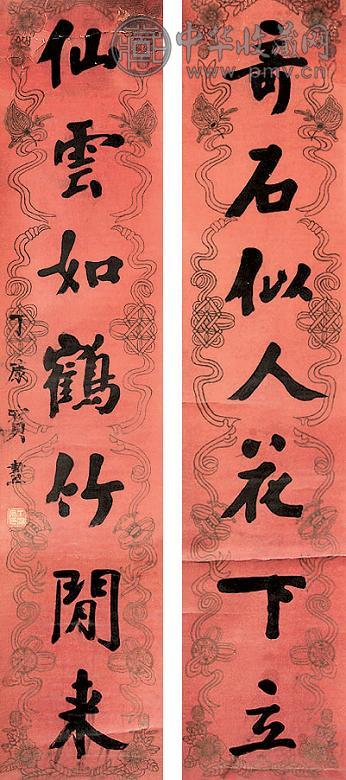 中华收藏网
www.pmv.cn
奇石似人花下立
仙雲如鶴竹閒来
丁康寶